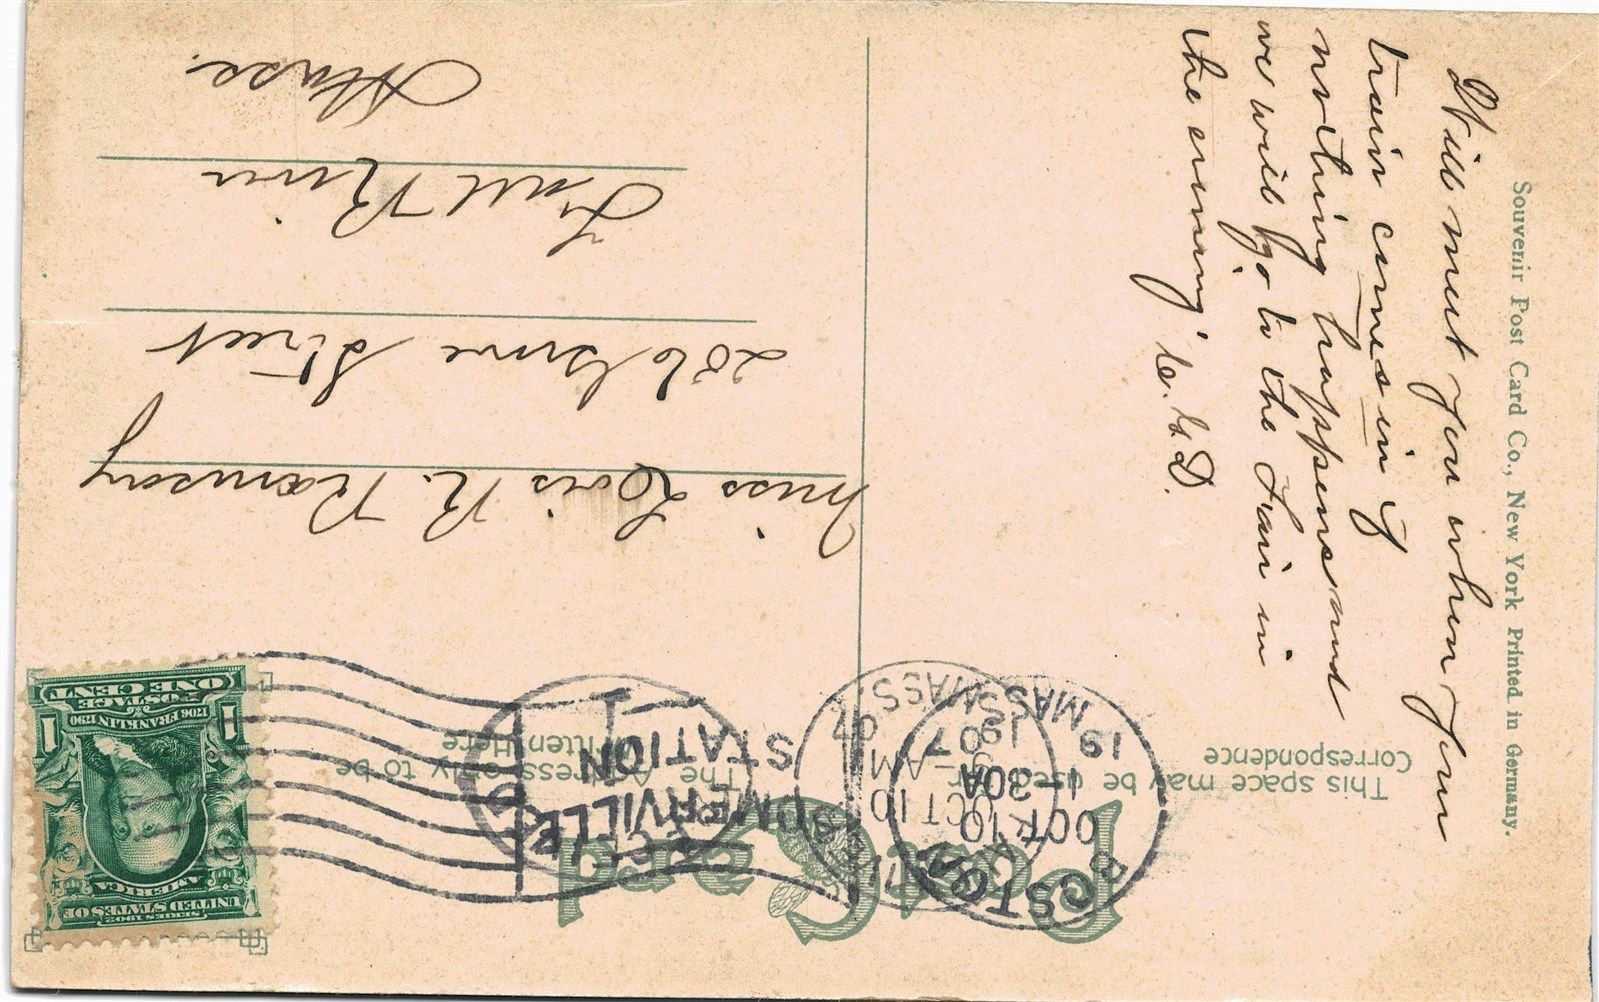 Post Card
This space may be used for
Correspondence
The Address only to be
Written Here
BOSTON
OCT 10
1-30A
1907
MASS.
OCT 10
AM
07
MASS.
SOMERVILLE
STATION
SERIES 1902
UNITED STATES OF
AMERICA
1706 FRANKLIN 1790
POSTAGE
1 ONE CENT 1
Miss Lois R. Ramsay
206 Grove Street
Fall River
Mass.
Will meet you when your
train comes in if
nothing happens and
we will go to the Fair in
the evening. C. G. D.
Souvenir Post Card Co., New York Printed in Germany.